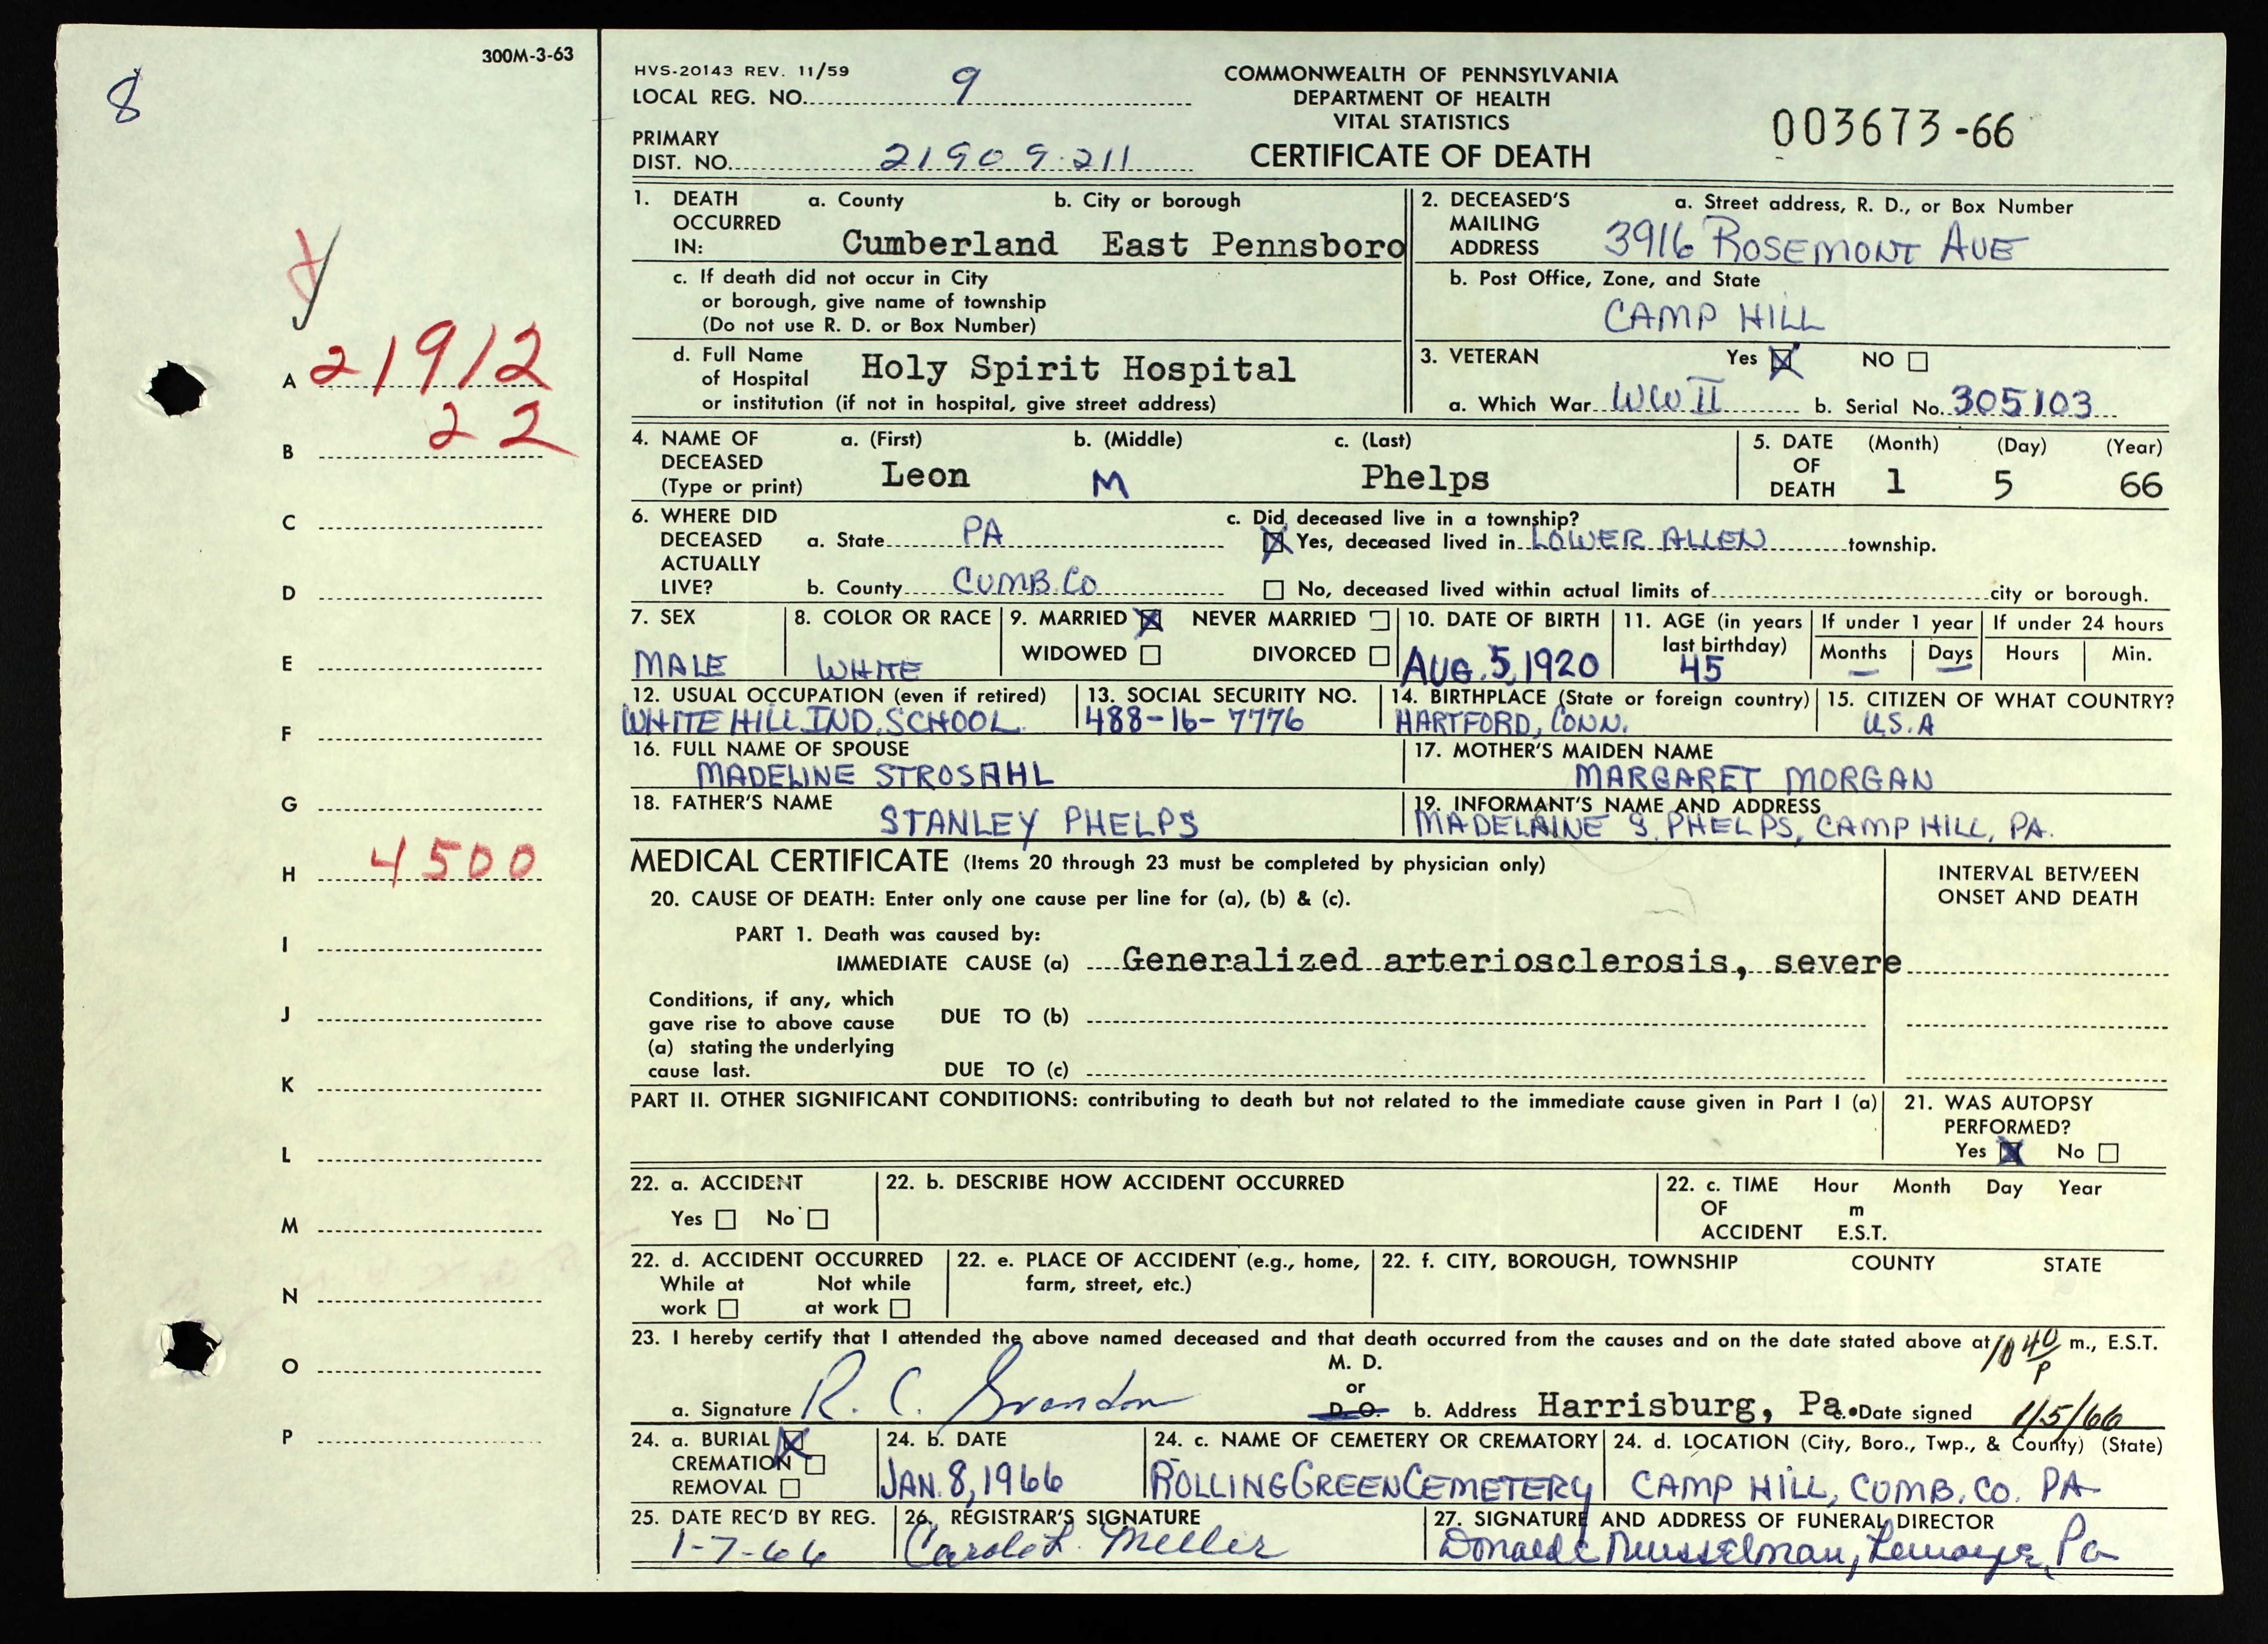 300M-3-63
8
y
A 21912
B 22
C
D
E
F
G
H 4500
I
J
K
L
M
N
O
P
HVS-20143 REV. 11/59
LOCAL REG. NO. 9
PRIMARY
DIST. NO. 21909-211
COMMONWEALTH OF PENNSYLVANIA
DEPARTMENT OF HEALTH
VITAL STATISTICS
CERTIFICATE OF DEATH
003673-66
1. DEATH OCCURRED IN: a. County b. City or borough
Cumberland East Pennsboro
c. If death did not occur in City
or borough, give name of township
(Do not use R. D. or Box Number)
d. Full Name of Hospital Holy Spirit Hospital
or institution (if not in hospital, give street address)
2. DECEASED'S MAILING ADDRESS a. Street address, R. D., or Box Number
3916 ROSEMONT AVE
b. Post Office, Zone, and State
CAMP HILL
3. VETERAN Yes X NO
a. Which War WW II b. Serial No. 305103
4. NAME OF DECEASED (Type or print) a. (First) b. (Middle) c. (Last)
Leon M Phelps
5. DATE OF DEATH (Month) (Day) (Year)
1 5 66
6. WHERE DID DECEASED ACTUALLY LIVE?
a. State PA
b. County CUMB. CO
c. Did deceased live in a township?
X Yes, deceased lived in LOWER ALLEN township.
No, deceased lived within actual limits of city or borough.
7. SEX
MALE
8. COLOR OR RACE
WHITE
9. MARRIED X NEVER MARRIED
WIDOWED DIVORCED
10. DATE OF BIRTH
AUG. 5, 1920
11. AGE (in years last birthday)
45
If under 1 year
Months Days
— —
If under 24 hours
Hours Min.
12. USUAL OCCUPATION (even if retired)
WHITE HILL IND. SCHOOL
13. SOCIAL SECURITY NO.
488-16-7776
14. BIRTHPLACE (State or foreign country)
HARTFORD, CONN.
15. CITIZEN OF WHAT COUNTRY?
U.S.A
16. FULL NAME OF SPOUSE
MADELINE STROSAHL
17. MOTHER'S MAIDEN NAME
MARGARET MORGAN
18. FATHER'S NAME
STANLEY PHELPS
19. INFORMANT'S NAME AND ADDRESS
MADELAINE S. PHELPS, CAMP HILL, PA.
MEDICAL CERTIFICATE (Items 20 through 23 must be completed by physician only)
INTERVAL BETWEEN
ONSET AND DEATH
20. CAUSE OF DEATH: Enter only one cause per line for (a), (b) & (c).
PART 1. Death was caused by:
IMMEDIATE CAUSE (a) Generalized arteriosclerosis, severe
Conditions, if any, which
gave rise to above cause
(a) stating the underlying
cause last.
DUE TO (b)
DUE TO (c)
PART II. OTHER SIGNIFICANT CONDITIONS: contributing to death but not related to the immediate cause given in Part I (a)
21. WAS AUTOPSY
PERFORMED?
Yes X No
22. a. ACCIDENT
Yes No
22. b. DESCRIBE HOW ACCIDENT OCCURRED
22. c. TIME OF ACCIDENT Hour Month Day Year
m
E.S.T.
22. d. ACCIDENT OCCURRED
While at work Not while at work
22. e. PLACE OF ACCIDENT (e.g., home,
farm, street, etc.)
22. f. CITY, BOROUGH, TOWNSHIP COUNTY STATE
23. I hereby certify that I attended the above named deceased and that death occurred from the causes and on the date stated above at 10 40 P m., E.S.T.
a. Signature R. C.
M. D.
or
D. O.
b. Address Harrisburg, Pa.
c. Date signed 1/5/66
24. a. BURIAL X
CREMATION
REMOVAL
24. b. DATE
JAN. 8, 1966
24. c. NAME OF CEMETERY OR CREMATORY
ROLLING GREEN CEMETERY
24. d. LOCATION (City, Boro., Twp., & County) (State)
CAMP HILL, CUMB. CO. PA
25. DATE REC'D BY REG.
1-7-66
26. REGISTRAR'S SIGNATURE
Carole L. Miller
27. SIGNATURE AND ADDRESS OF FUNERAL DIRECTOR
Donald C Musselman, Lemoyne, Pa